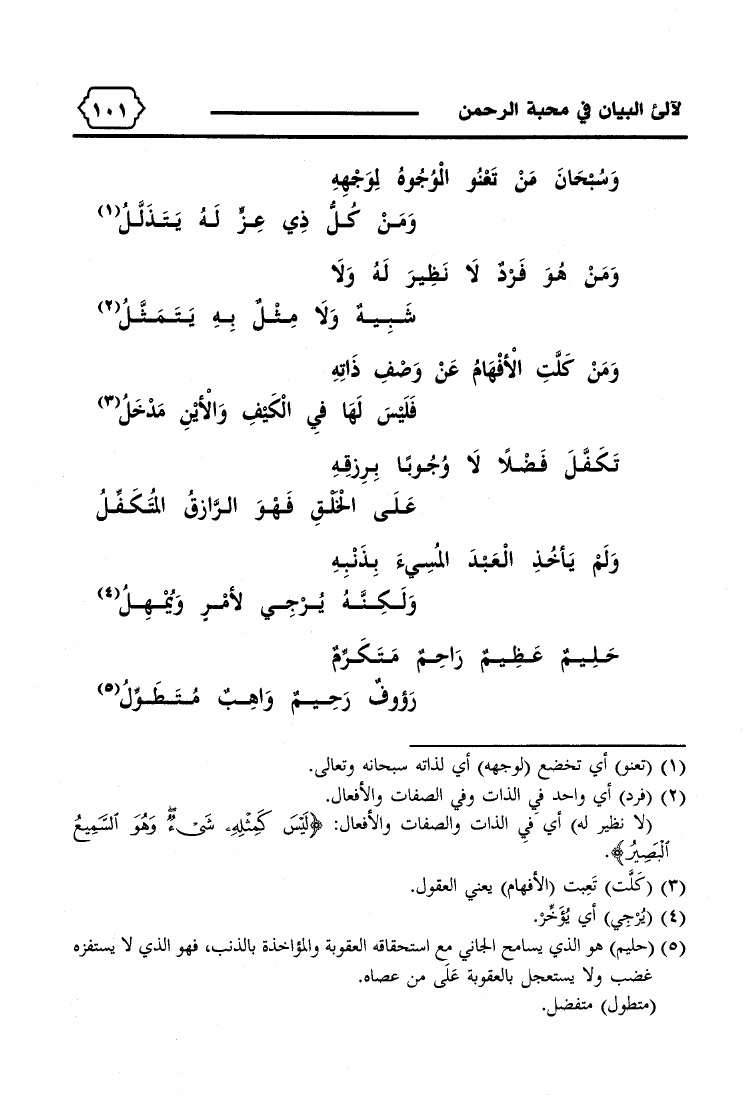 لآلئ البيان في محبة الرحمن ١٠١
وَسُبْحَانَ مَنْ تَعْنُو الْوُجُوهُ لِوَجْهِهِ
وَمَنْ كُلُّ ذِي عِزٍّ لَهُ يَتَذَلَّلُ(١)
وَمَنْ هُوَ فَرْدٌ لَا نَظِيرَ لَهُ وَلَا
شَبِيهٌ وَلَا مِثْلٌ بِهِ يَتَمَثَّلُ(٢)
وَمَنْ كَلَّتِ الْأَفْهَامُ عَنْ وَصْفِ ذَاتِهِ
فَلَيْسَ لَهَا فِي الْكَيْفِ وَالْأَيْنِ مَدْخَلُ(٣)
تَكَفَّلَ فَضْلًا لَا وُجُوبًا بِرِزقِهِ
عَلَى الْخَلْقِ فَهْوَ الرَّازِقُ الْمُتَكَفِّلُ
وَلَمْ يَأْخُذِ الْعَبْدَ الْمُسِيءَ بِذَنْبِهِ
وَلَكِنَّهُ يُرْجِي لأَمْرٍ وَيُمْهِلُ(٤)
حَلِيمٌ عَظِيمٌ رَاحِمٌ مَتَكَرِّمٌ
رَؤوفٌ رَحِيمٌ وَاهِبٌ مُتَطَوِّلُ(٥)
(١) (تعنو) أي تخضع (لوجهه) أي لذاته سبحانه وتعالى.
(٢) (فرد) أي واحد فِي الذات وفي الصفات والأفعال.
(لا نظير له) أي فِي الذات والصفات والأفعال: ﴿لَيْسَ كَمِثْلِهِۦ شَىْءٌ ۖ وَهُوَ ٱلسَّمِيعُ
ٱلْبَصِيرُ﴾.
(٣) (كَلَّت) تَعِبت (الأفهام) يعني العقول.
(٤) (يُرْجِي) أي يُؤَخِّرْ.
(٥) (حليم) هو الذي يسامح الجاني مع استحقاقه العقوبة والمؤاخذة بالذنب، فهو الذي لا يستفزه
غضب ولا يستعجل بالعقوبة عَلَى من عصاه.
(متطول) متفضل.